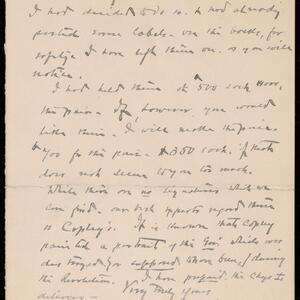 I had decided to do so. I had already
pasted some labels on the backs, for
safety I have left them on as you will
notice.
I had held them at $500 each
the pair. If, however, you would
like them, I will make the price
to you for the pair $350 each, if that
does not seem to you too much.
While there are no signatures which we
can find, our best experts regard them
as Copley's. It is known that Copley
painted a portrait of the Gov. which was
destroyed or supposed to have been, during
the Revolution. I have prepaid the chgs to
delivery —
Very truly yours